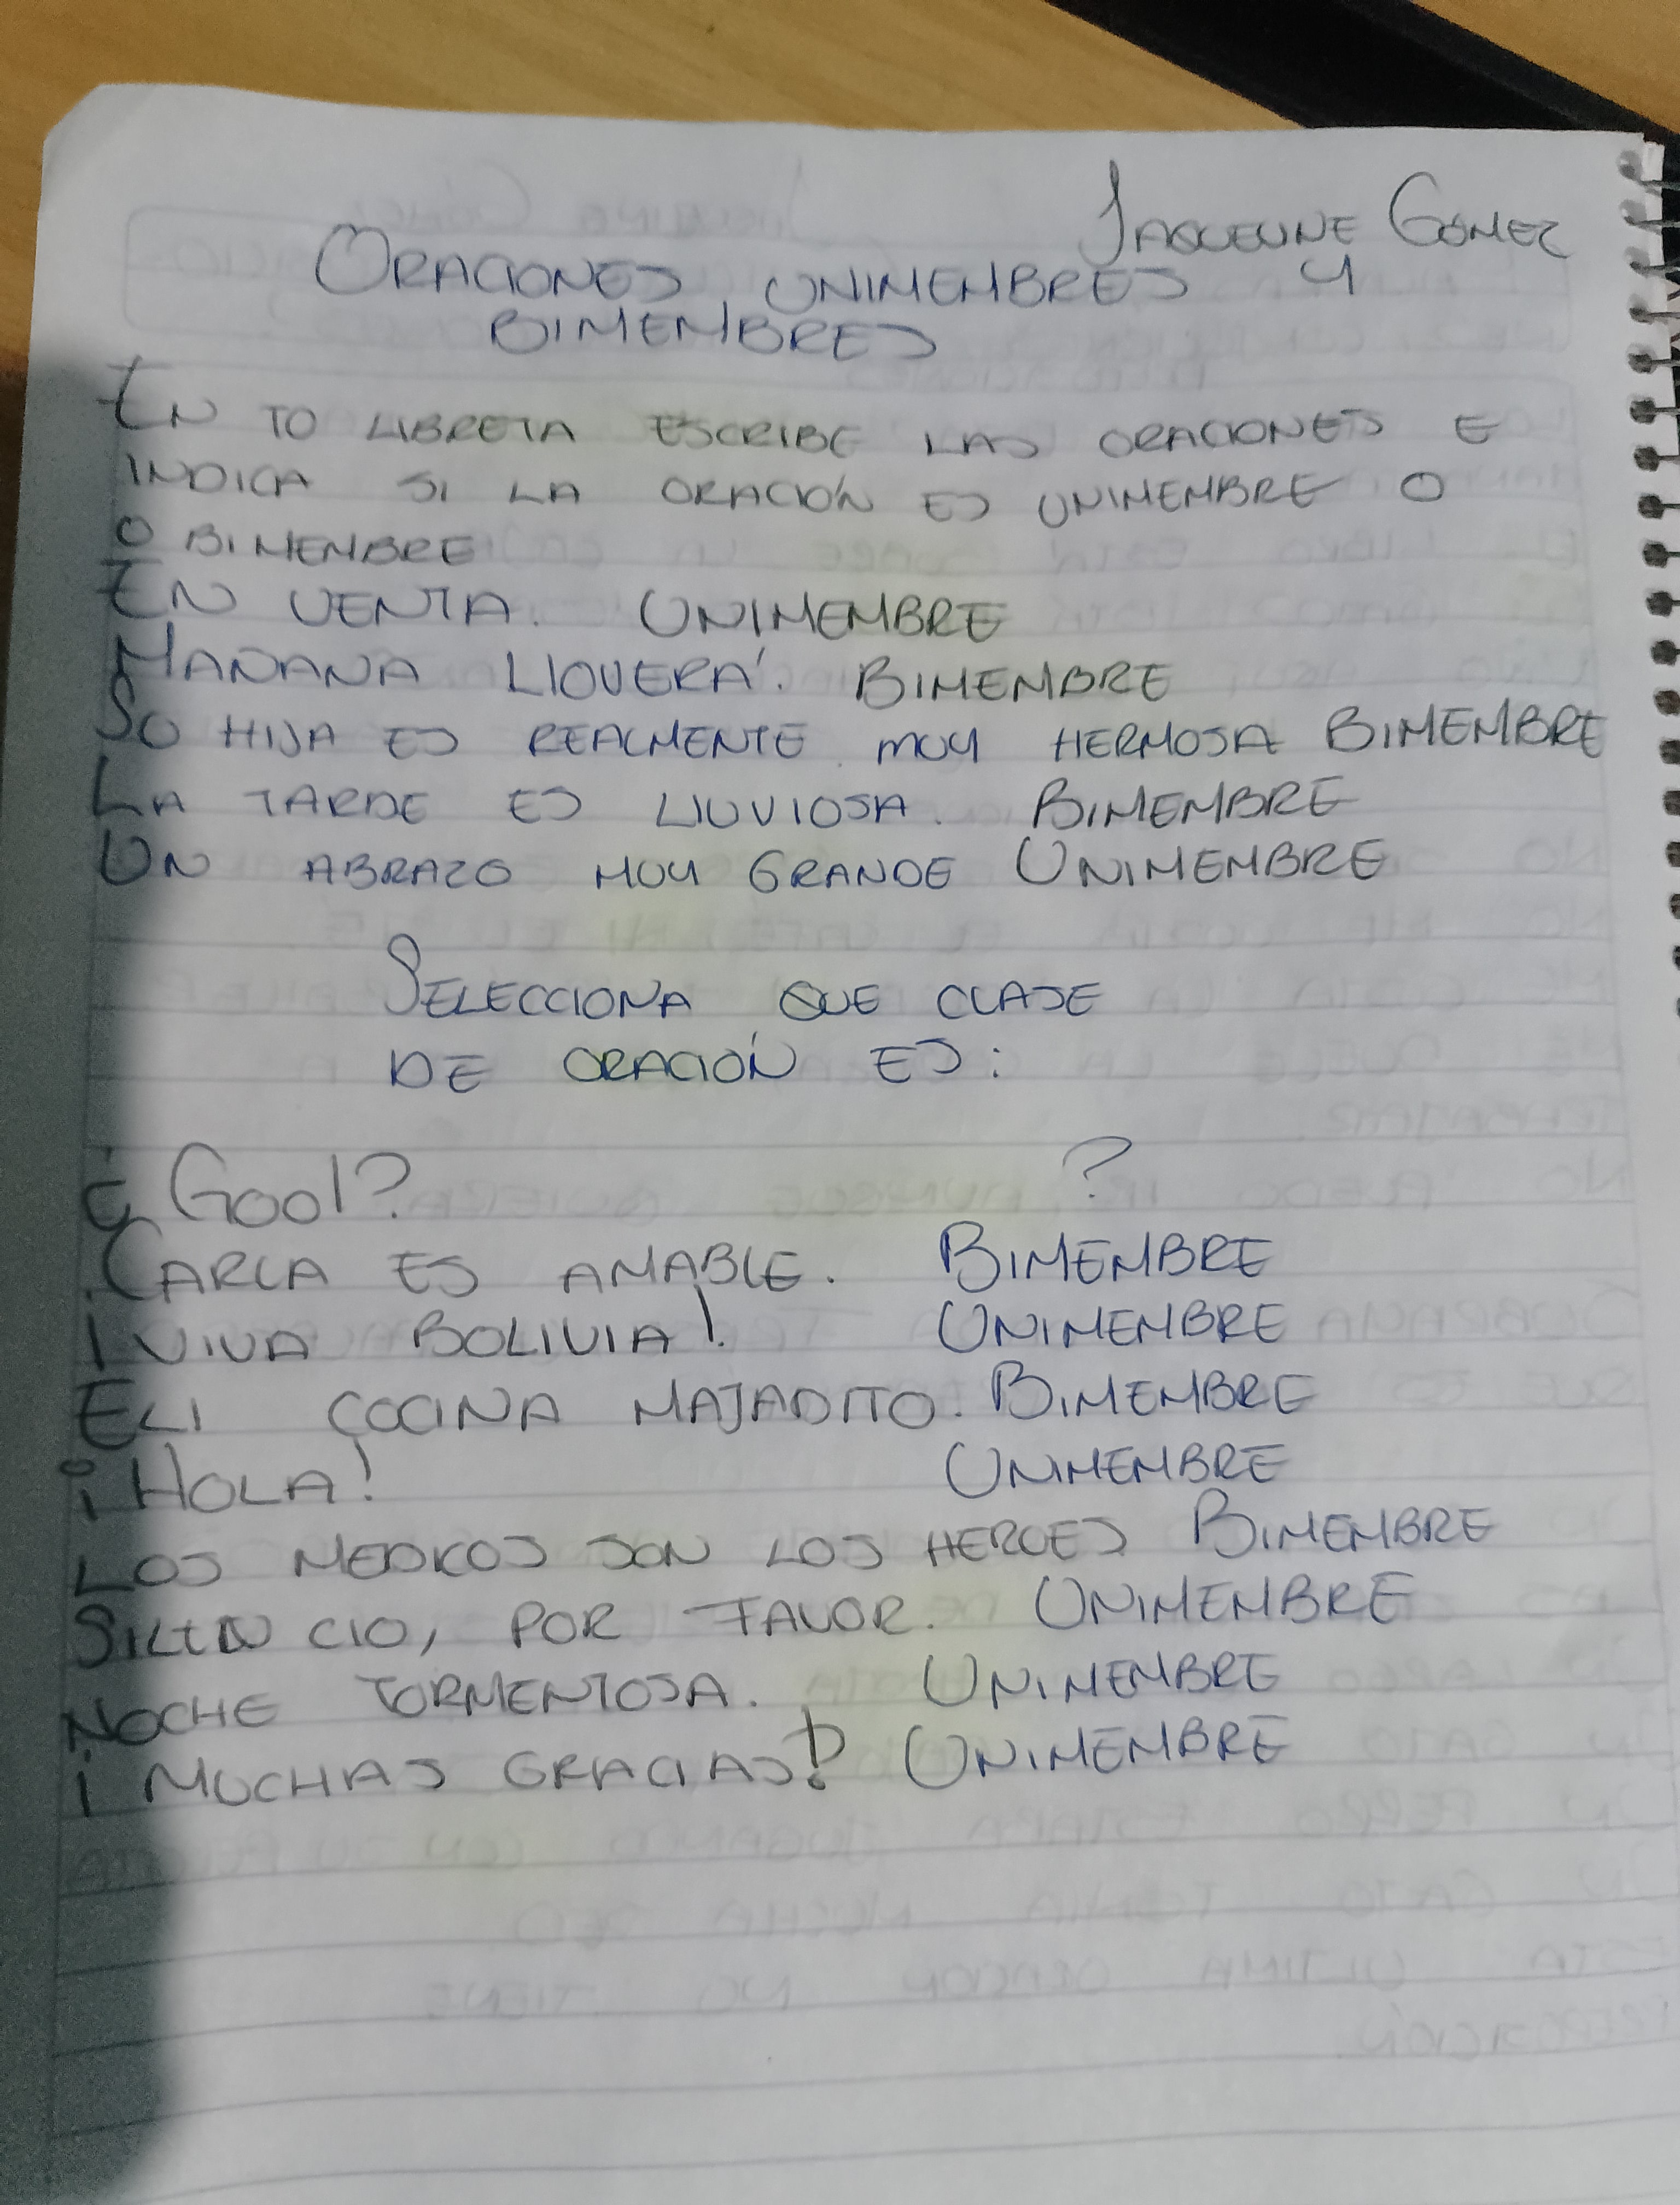 JAQUELINE GOMEZ
ORACIONES UNIMEMBRES Y
BIMEMBRES
EN TU LIBRETA ESCRIBE LAS ORACIONES E
INDICA SI LA ORACIÓN ES UNIMEMBRE O
O BIMEMBRE
EN VENTA. UNIMEMBRE
MAÑANA LLOVERÁ. BIMEMBRE
SU HIJA ES REALMENTE MUY HERMOSA BIMEMBRE
LA TARDE ES LLUVIOSA. BIMEMBRE
UN ABRAZO MUY GRANDE UNIMEMBRE
SELECCIONA QUE CLASE
DE ORACIÓN ES:
¿Gool? ?
CARLA ES AMABLE. BIMEMBRE
¡VIVA BOLIVIA! UNIMEMBRE
ELI COCINA MAJADITO. BIMEMBRE
¡HOLA! UNIMEMBRE
LOS MEDICOS SON LOS HEROES BIMEMBRE
SILENCIO, POR FAVOR. UNIMEMBRE
NOCHE TORMENTOSA. UNIMEMBRE
¡MUCHAS GRACIAS! UNIMEMBRE